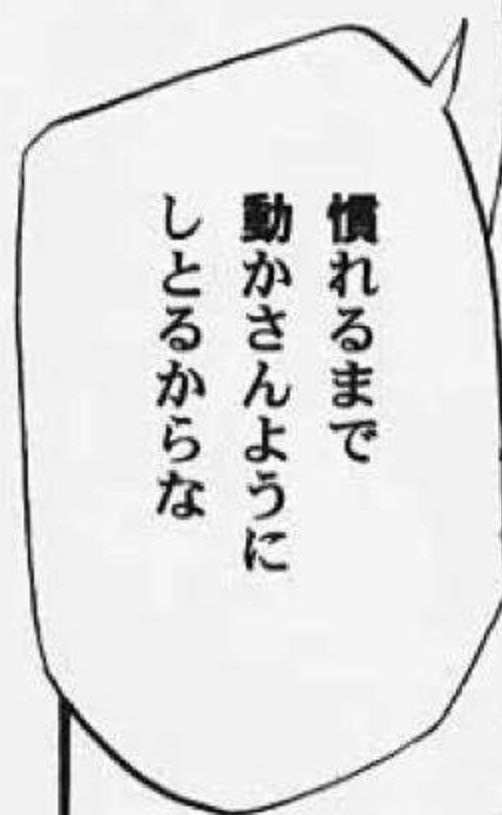 慣れるまで
動かさんように
しとるからな